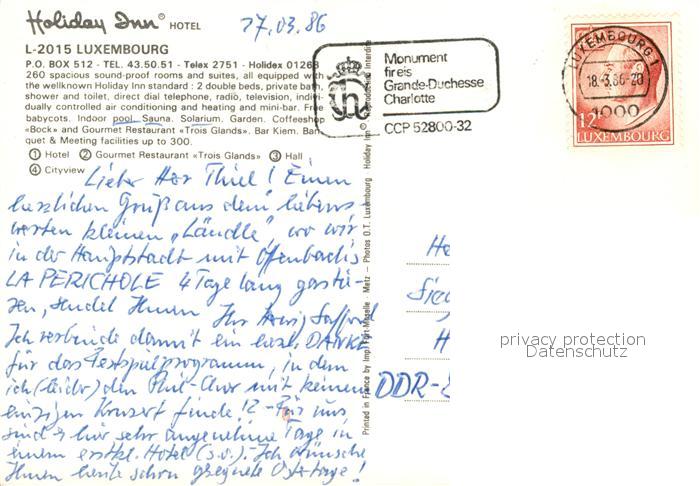 Holiday Inn® HOTEL
17.03.86
L-2015 LUXEMBOURG
P.O. BOX 512 - TEL. 43.50.51 - Telex 2751 - Holidex 01268
260 spacious sound-proof rooms and suites, all equipped with
the wellknown Holiday Inn standard : 2 double beds, private bath,
shower and toilet, direct dial telephone, radio, television, indivi-
dually controlled air conditioning and heating and mini-bar. Free
babycots. Indoor pool. Sauna. Solarium. Garden. Coffeeshop
«Bock» and Gourmet Restaurant «Trois Glands». Bar Kiem. Ban-
quet & Meeting facilities up to 300.
① Hotel ② Gourmet Restaurant «Trois Glands» ③ Hall
④ Cityview
Lieber Herr Thiel! Einen
herzlichen Gruß aus dem liebens-
werten kleinen „Ländle", wo wir
in der Hauptstadt mit Offenbachs
LA PERICHOLE 4 Tage lang gastie-
ren, sendet Ihnen Ihr
Ich verbinde damit ein herzl. DANKE
für das Festspielprogramm, in dem
ich (leider) den Phil-Chor mit keinem
einzigen Konzert finde!? - Für uns
sind es hier sehr angenehme Tage in
einem erstkl. Hotel (s.o.). Ich wünsche
Ihnen heute schon gesegnete Ostertage!
Printed in France by Impr. Fort-Moselle - Metz - Photos O.T. Luxembourg Holiday Inn © Reproduction Interdite
Monument
fir eis
Grande-Duchesse
Charlotte
CCP 52800-32
LUXEMBOURG 1
18.-3.86-20
1000
12F
LUXEMBOURG
He
H
DDR-8
privacy protection
Datenschutz